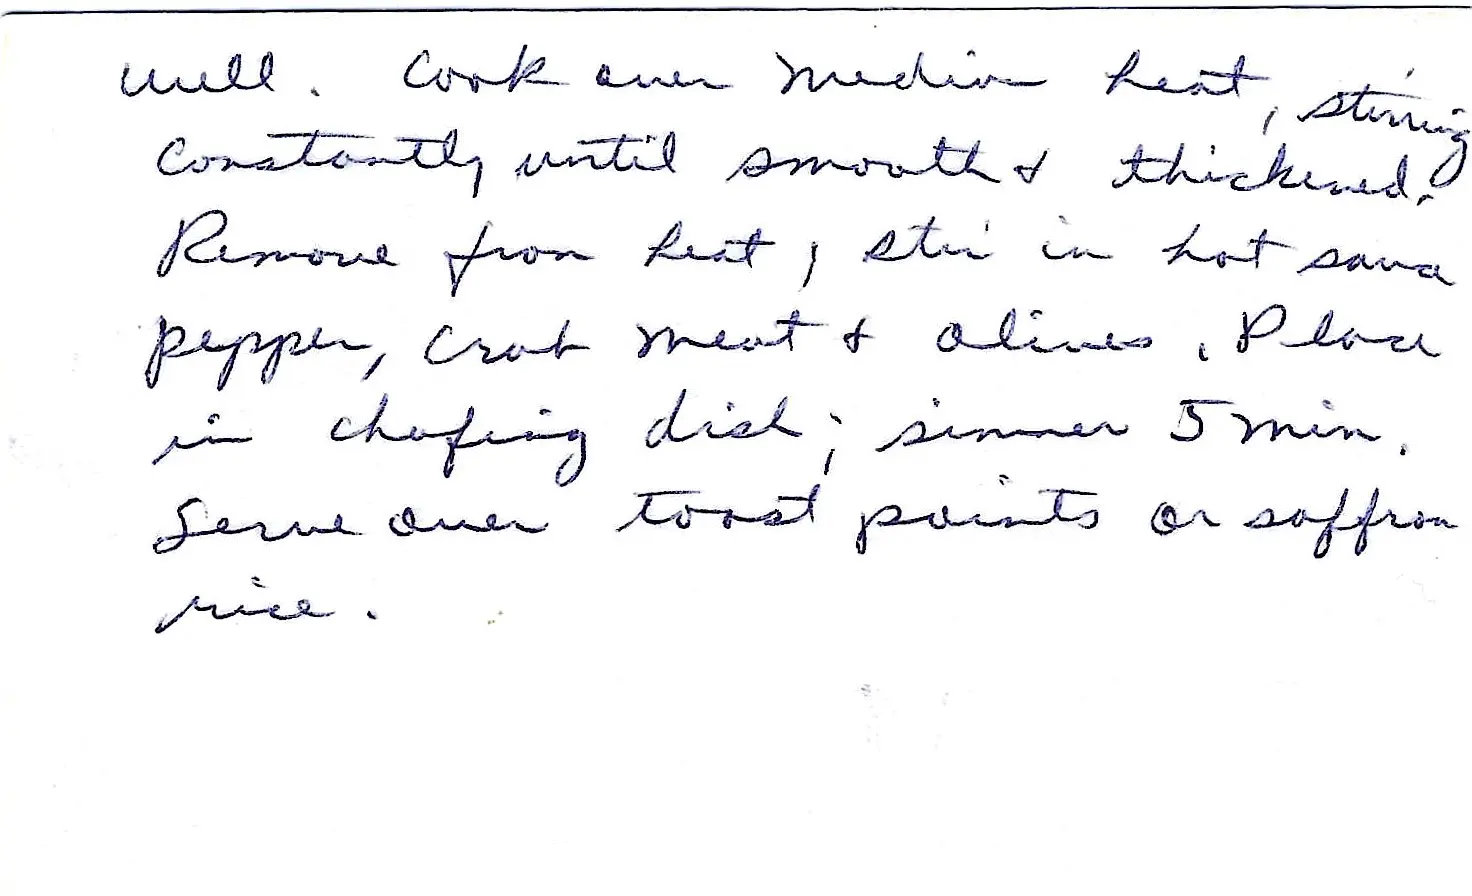 well. Cook over medium heat, stirring
constantly until smooth & thickened.
Remove from heat, stir in hot sauce
pepper, crab meat & olives. Place
in chafing dish; simmer 5 min.
Serve over toast points or saffron
rice.